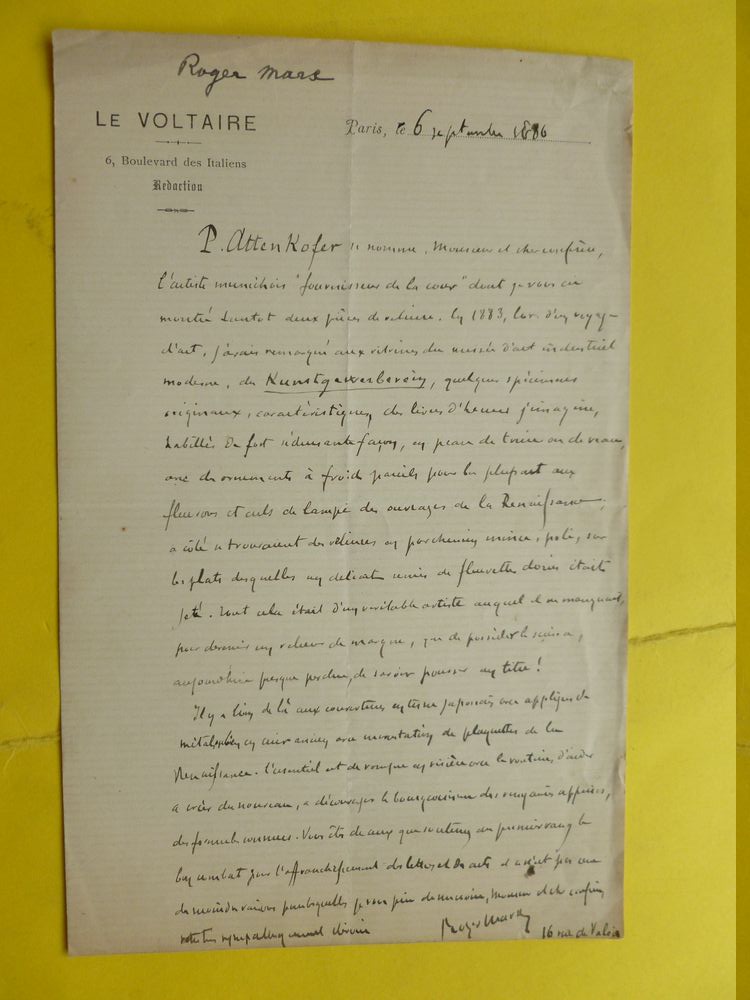 Roger Marx
LE VOLTAIRE
Paris, le 6 septembre 1886
6, Boulevard des Italiens
Rédaction
P. Attenkofer se nomme, Monsieur et cher confrère,
l'artiste munichois "fournisseur de la cour" dont je vous ai
montré tantôt deux pièces de reliure. En 1883, lors d'un voyage
d'art, j'avais remarqué aux vitrines du musée d'art industriel
moderne, du Kunstgewerbeverein, quelques spécimens
originaux, caractéristiques, des livres d'heures j'imagine,
habillés de fort séduisante façon, en peau de truie ou de veau,
avec des ornements à froid pareils pour la plupart aux
fleurons et culs de lampe des ouvrages de la Renaissance;
à côté se trouvaient des reliures en parchemin mince, poli, sur
les plats desquelles un délicat semis de fleurettes dorées était
jeté. Tout cela était d'un véritable artiste auquel il ne manquait,
pour devenir un relieur de marque, que de posséder la science,
aujourd'hui presque perdue, de savoir pousser un titre!
Il y a loin de là aux couvertures en japonais avec appliques de
métal, en cuir ancien avec incrustation de plaquettes de la
Renaissance. L'essentiel est de rompre en visière avec la routine, d'aider
à créer du nouveau, à décourager le bourgeoisisme des moyens appris,
des formules connues. Vous êtes de ceux qui soutiennent au premier rang le
bon combat pour l'affranchissement des lettres et des arts et ce n'est pas une
des moindres raisons pour lesquelles je vous prie de me croire, Monsieur et cher confrère,
votre très sympathiquement dévoué
Roger Marx
16 rue de Valois